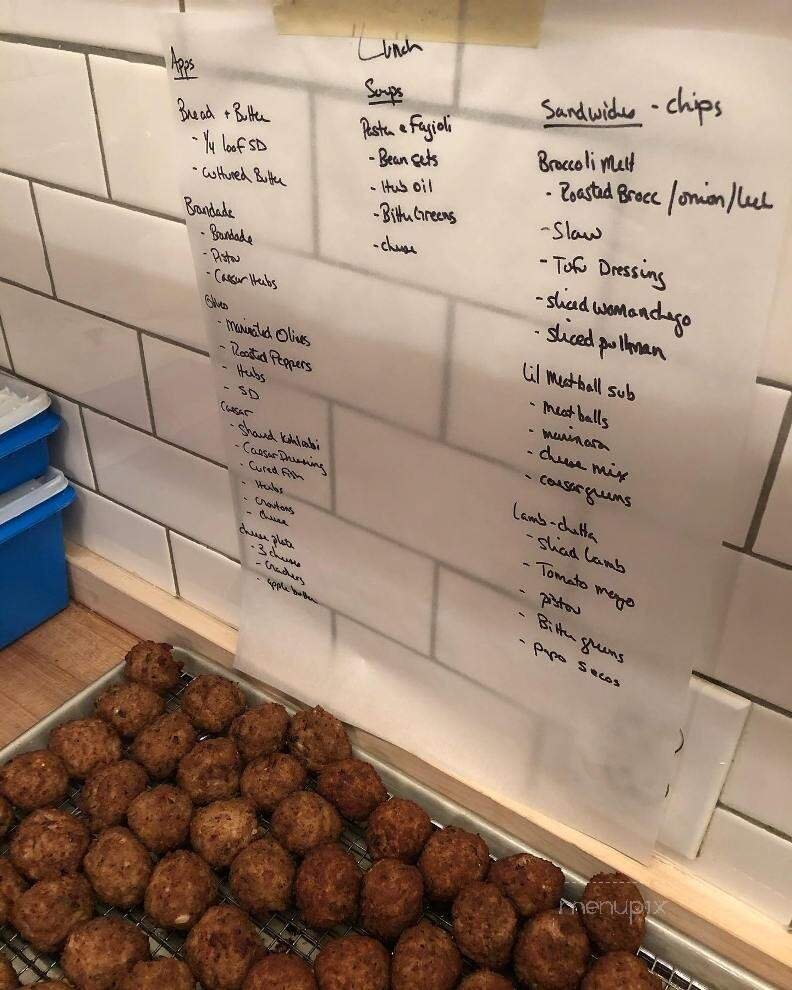 Lunch
Apps
Bread + Butter
- 1/4 loaf SD
- cultured Butter
Brandade
- Brandade
- Pistou
- Caesar Herbs
Olives
- Marinated Olives
- Roasted Peppers
- Herbs
- SD
Caesar
- Shaved Kohlrabi
- Caesar Dressing
- Cured Fish
- Herbs
- croutons
- cheese
cheese plate
- 3 cheese
- crackers
- apple butter
Soups
Pasta e Fagioli
- Bean sets
- Herb oil
- Bitter Greens
- cheese
Sandwiches - chips
Broccoli Melt
- Roasted Brocc /onion/leek
- Slaw
- Tofu Dressing
- sliced womanchego
- sliced pullman
Lil Meatball sub
- meatballs
- marinara
- cheese mix
- caesar greens
Lamb-chetta
- sliced lamb
- Tomato mayo
- pistou
- Bitter greens
- papo secos
menupix